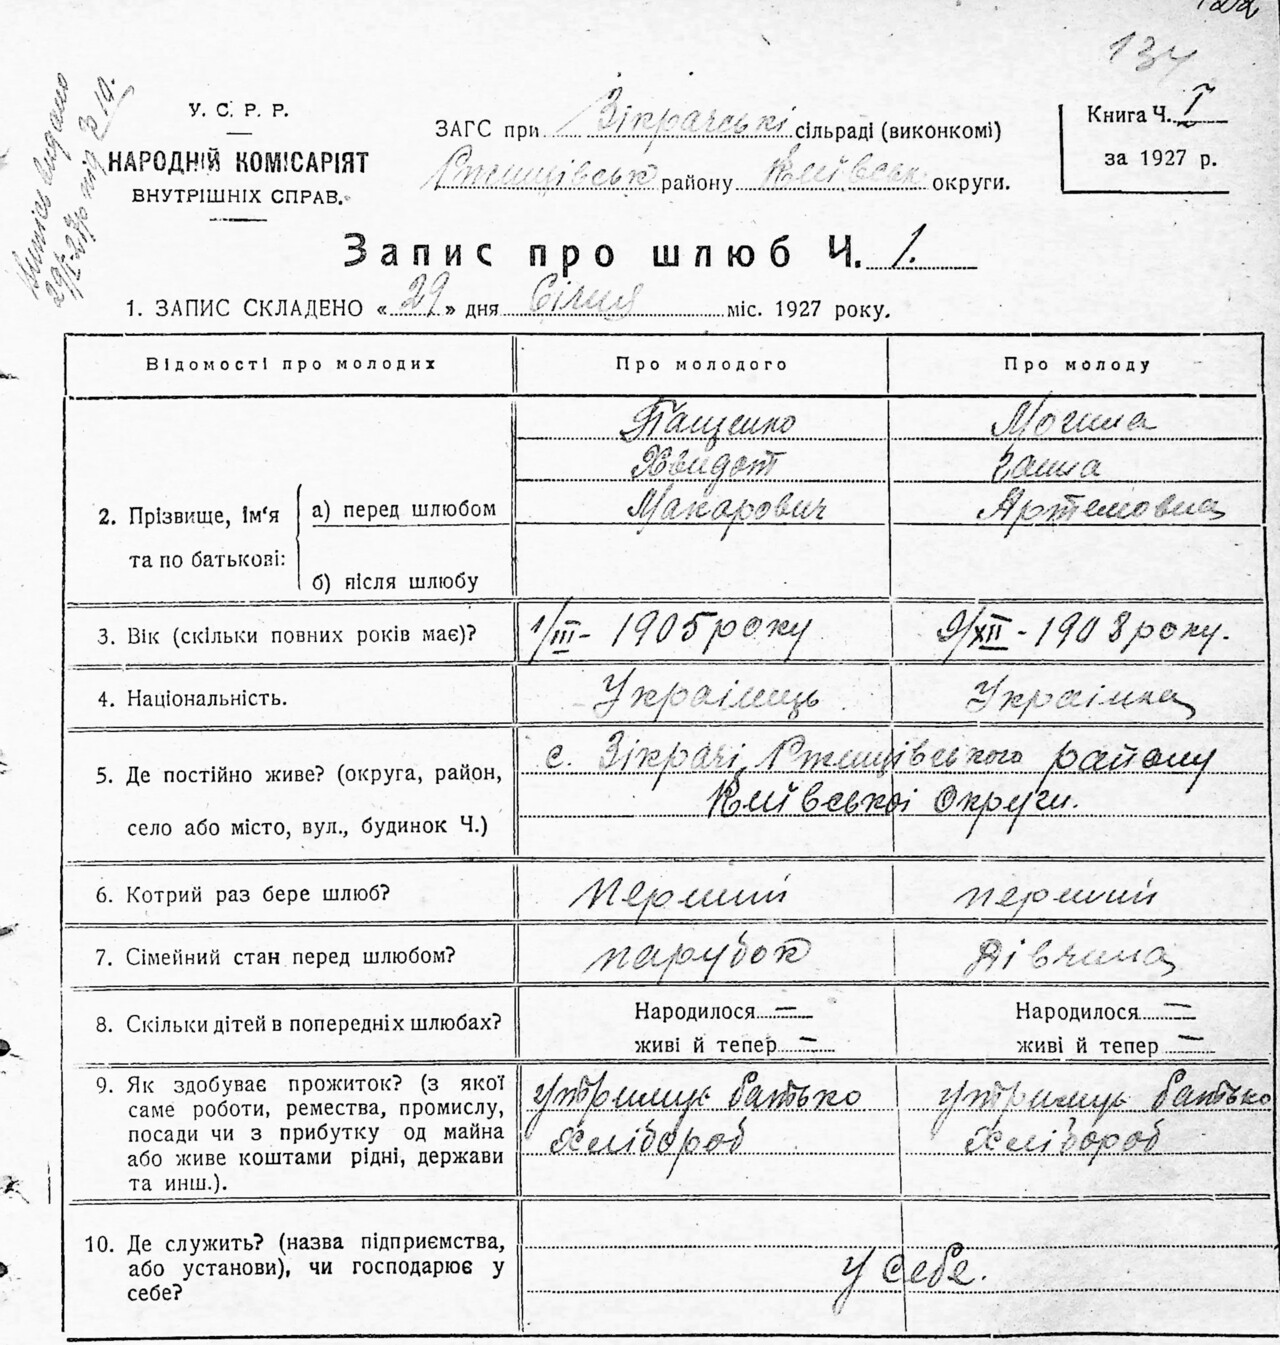 122
134
Випись видано
У. С. Р. Р.
НАРОДНІЙ КОМІСАРІЯТ
ВНУТРІШНІХ СПРАВ.
ЗАГС при Зікрачські сільраді (виконкомі)
Ржищівськ району Київськ округи.
Книга Ч. I
за 1927 р.
Запис про шлюб Ч. 1.
1. ЗАПИС СКЛАДЕНО «29» дня Січня міс. 1927 року.
Відомості про молодих
Про молодого
Про молоду
2. Прізвище, ім'я та по батькові:
а) перед шлюбом
Пащенко
Хведот
Макарович
Могила
Ганна
Артемовна
б) після шлюбу
3. Вік (скільки повних років має)?
1/III - 1905 року
9/XII - 1908 року.
4. Національність.
Українець
Українка
5. Де постійно живе? (округа, район,
село або місто, вул., будинок Ч.)
с. Зікрачі, Ржищівського району
Київської Округи.
6. Котрий раз бере шлюб?
перший
перший
7. Сімейний стан перед шлюбом?
парубок
Дівчина
8. Скільки дітей в попередніх шлюбах?
Народилося —
живі й тепер —
Народилося —
живі й тепер —
9. Як здобуває прожиток? (з якої
саме роботи, ремества, промислу,
посади чи з прибутку од майна
або живе коштами рідні, держави
та инш.).
Утримує батько
Хлібороб
утримує батько
Хлібороб
10. Де служить? (назва підприємства,
або установи), чи господарює у
себе?
У себе.